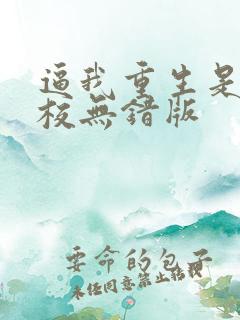 逼我重生是
校無錯版
要命的包子
未经同意禁止转载